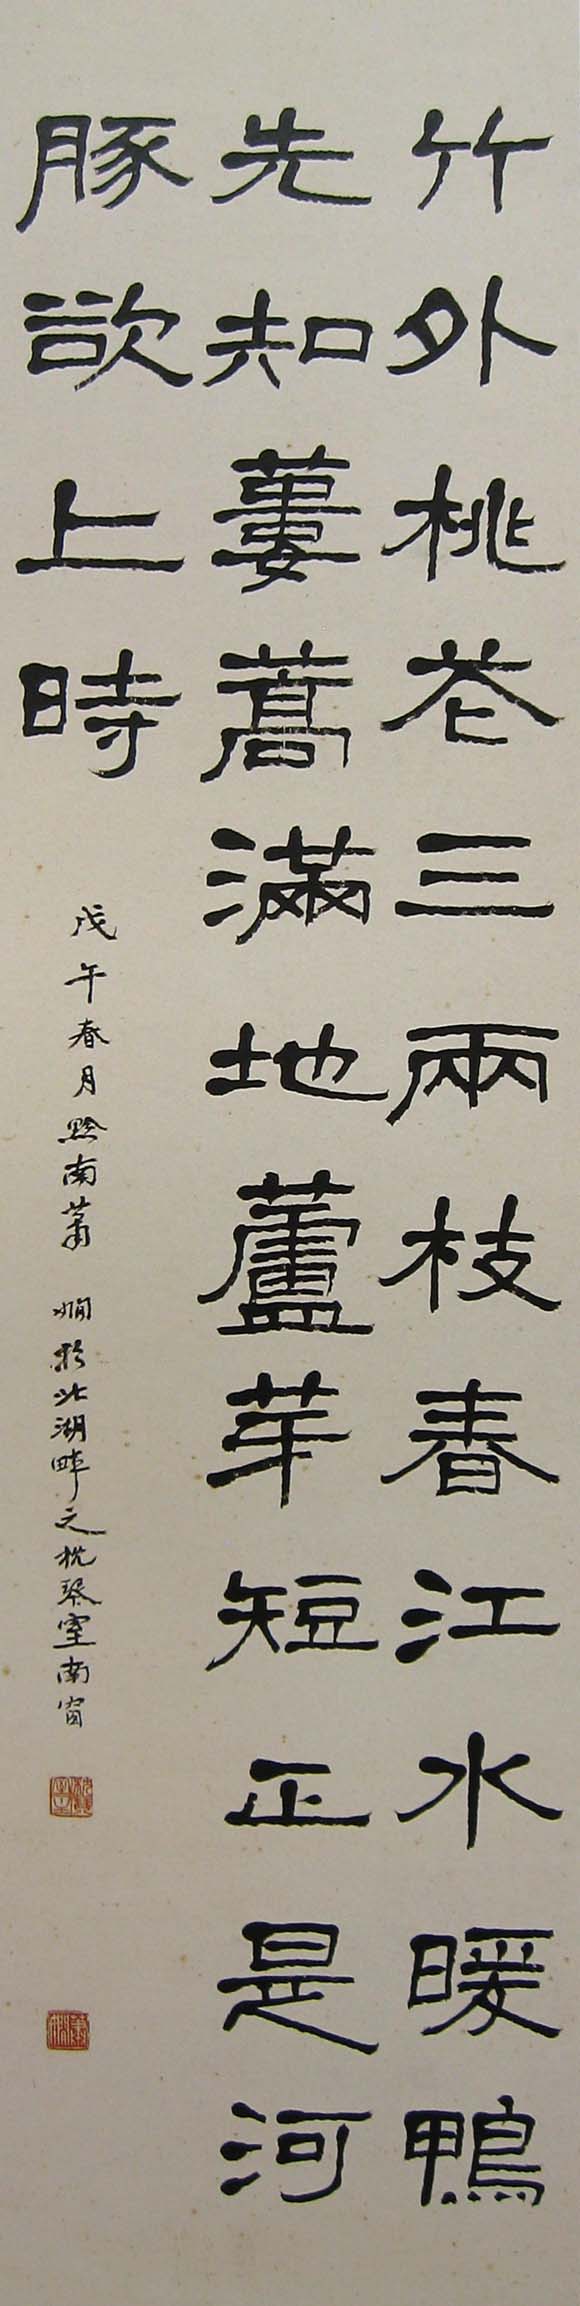 竹外桃花三兩枝春江水暖鴨
先知蔞蒿滿地蘆芽短正是河
豚欲上時
戊午春月黔南蕭 嫺於北湖畔之枕琴室南窗